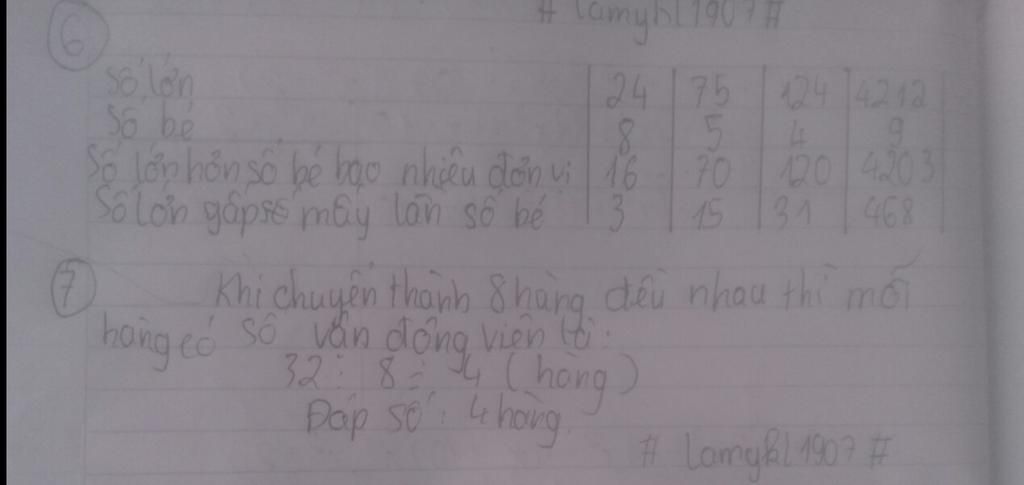 # lamykl1907#
6
Số lớn | 24 | 75 | 124 | 4212
Số bé | 8 | 5 | 4 | 9
Số lớn hơn số bé bao nhiêu đơn vị | 16 | 70 | 120 | 4203
Số lớn gấp mấy lần số bé | 3 | 15 | 31 | 468
7 Khi chuyển thành 8 hàng đều nhau thì mỗi
hàng có số vận động viên là:
32 : 8 = 4 (hàng)
Đáp số: 4 hàng.
# lamykl1907 #